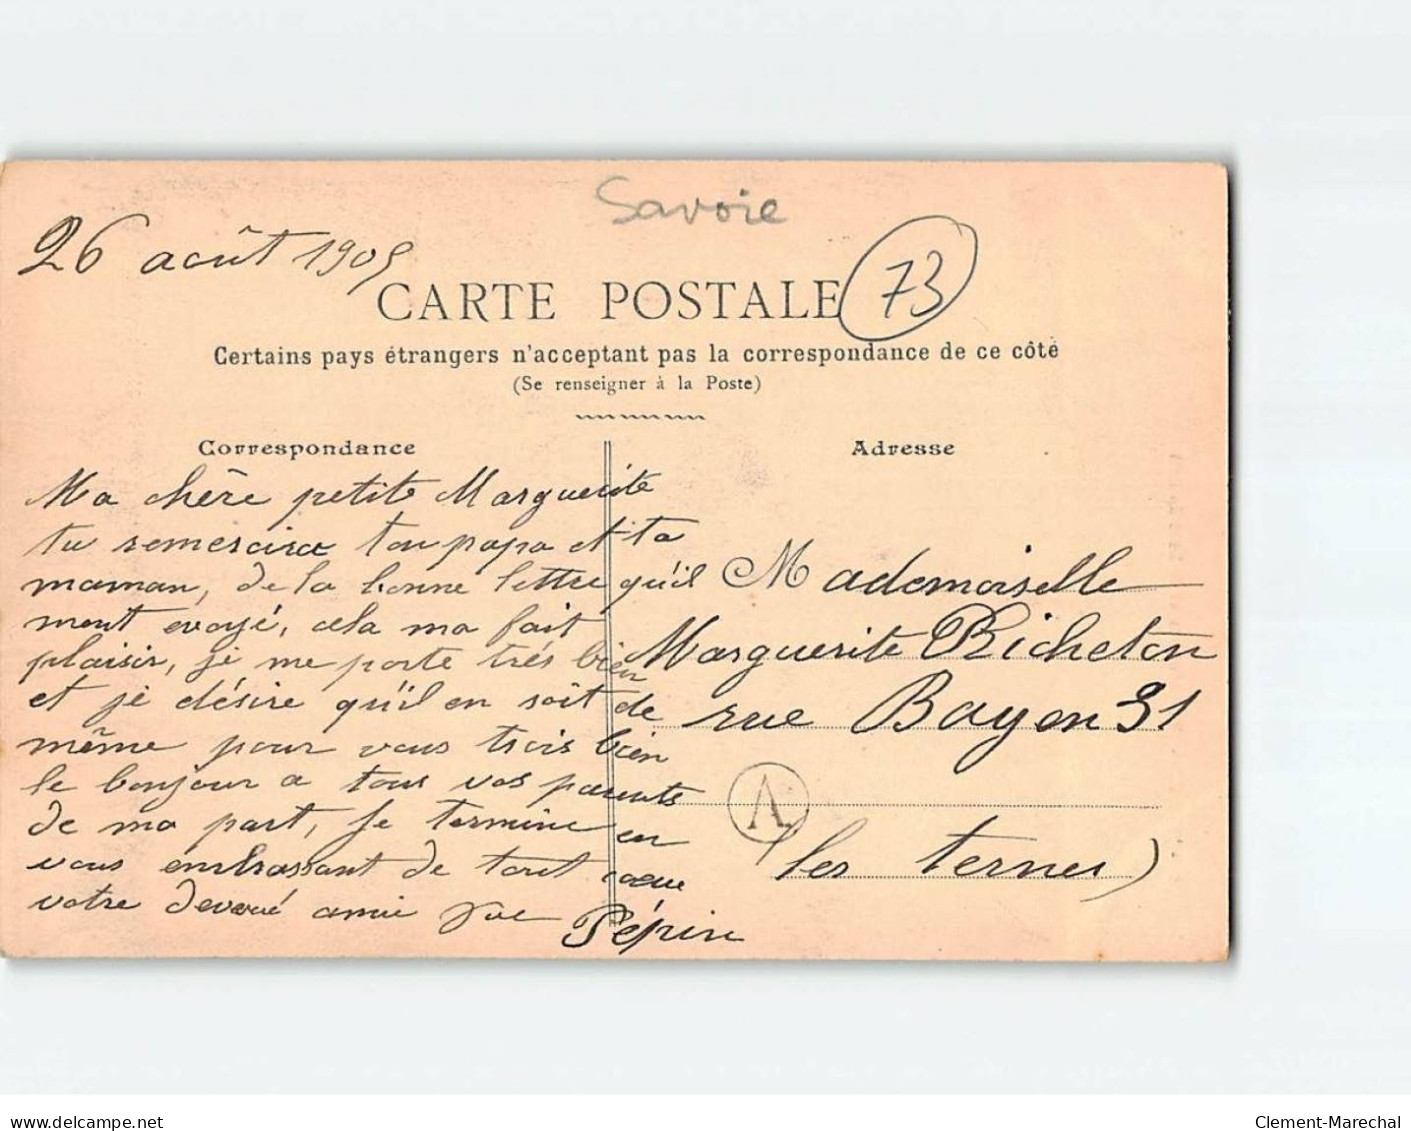 Savoie
26 août 1905
73
CARTE POSTALE
Certains pays étrangers n'acceptant pas la correspondance de ce côté
(Se renseigner à la Poste)
Correspondance
Ma chère petite Marguerite
tu remercira ton papa et ta
maman, de la bonne lettre qu'il
mont evoyé, cela ma fait
plaisir, je me porte très bien
et je désire qu'il en soit de
même pour vous trois bien
le bonjour a tous vos parents
de ma part, je termine en
vous embrassant de tout cœur
votre devoué amie
Pépin
Adresse
Mademoiselle
Marguerite Richeton
rue Bayen 31
A
(les ternes)
delcampe.net
Clement-Marechal